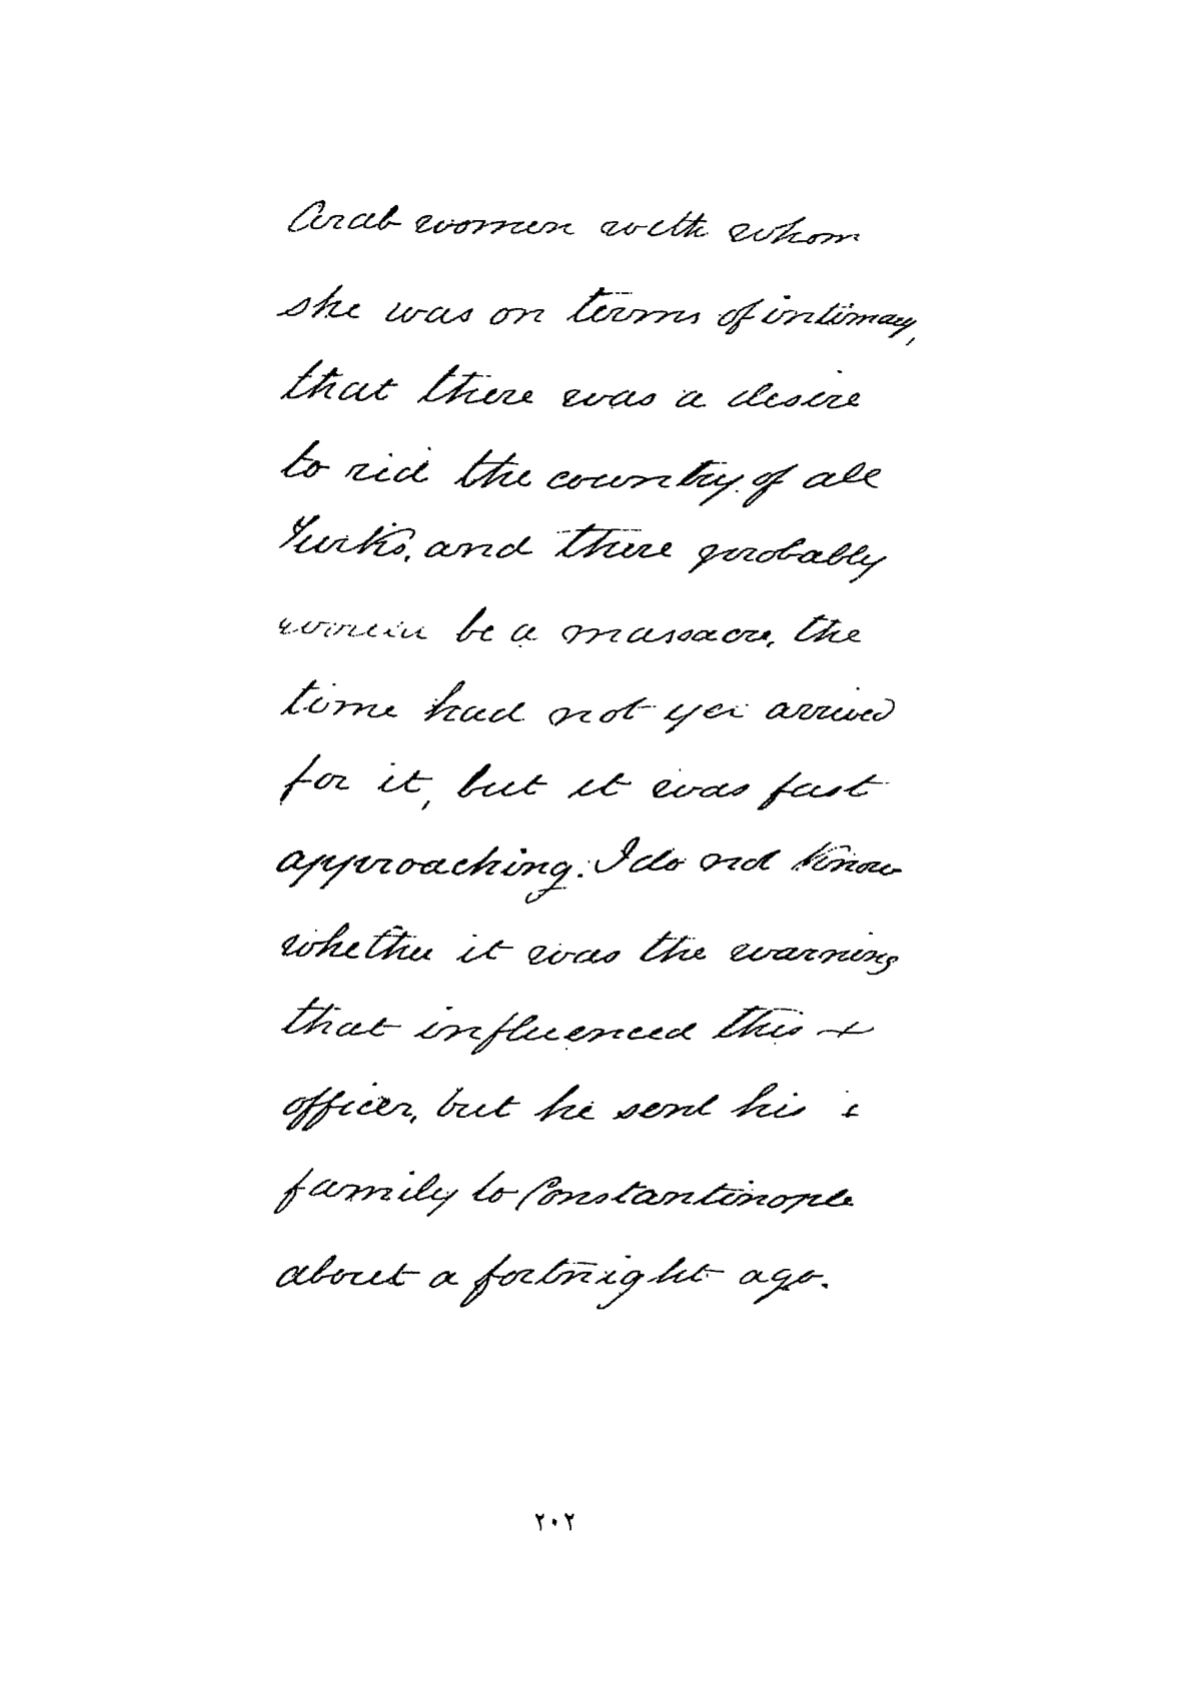 Arab women with whom
she was on terms of intimacy,
that there was a desire
to rid the country of all
Turks, and there probably
would be a massacre, the
time had not yet arrived
for it, but it was fast
approaching. I do not know
whether it was the warning
that influenced this
officer, but he sent his
family to Constantinople
about a fortnight ago.
٢٠٢